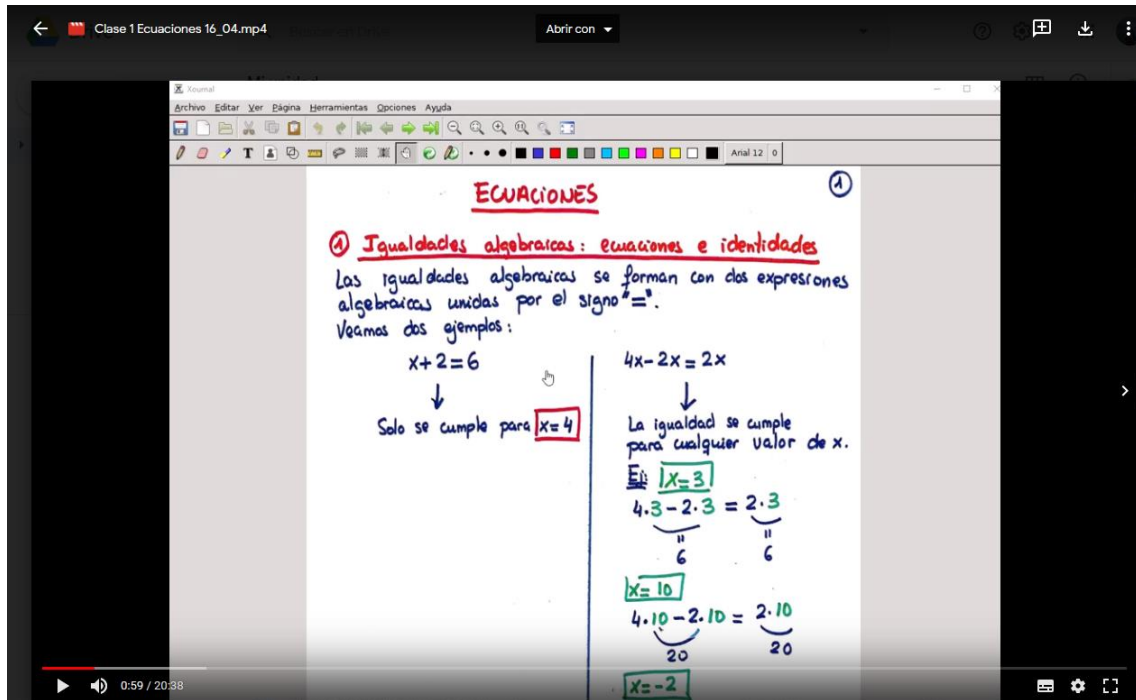 Clase 1 Ecuaciones 16_04.mp4
Abrir con
Xournal
Archivo Editar Ver Página Herramientas Opciones Ayuda
Arial 12 0
ECUACIONES
1
1 Igualdades algebraicas: ecuaciones e identidades
Las igualdades algebraicas se forman con dos expresiones
algebraicas unidas por el signo "=".
Veamos dos ejemplos:
x+2=6
Solo se cumple para x=4
4x-2x=2x
La igualdad se cumple
para cualquier valor de x.
Ej: x=3
4·3-2·3 = 2·3
= =
6 6
x=10
4·10-2·10 = 2·10
20 20
x=-2
0:59 / 20:38